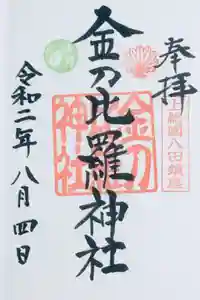 奉拝
國八田鎮座
金刀比羅神社
金刀
神社
令和二年八月四日